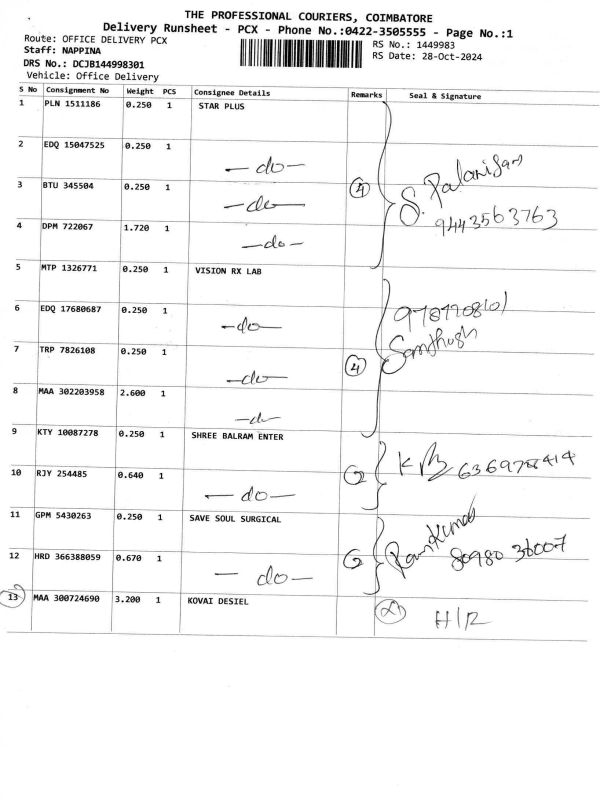 THE PROFESSIONAL COURIERS, COIMBATORE
Delivery Runsheet - PCX - Phone No.:0422-3505555 - Page No.:1
Route: OFFICE DELIVERY PCX
RS No.: 1449983
Staff: NAPPINA
RS Date: 28-Oct-2024
DRS No.: DCJB144998301
Vehicle: Office Delivery
S No Consignment No Weight PCS Consignee Details Remarks Seal & Signature
1 PLN 1511186 0.250 1 STAR PLUS
2 EDQ 15047525 0.250 1 -do-
3 BTU 345504 0.250 1 -do- 4 S. Palanisam
4 DPM 722067 1.720 1 -do- 9443563763
5 MTP 1326771 0.250 1 VISION RX LAB
6 EDQ 17680687 0.250 1 -do-
7 TRP 7826108 0.250 1 -do- 4
8 MAA 302203958 2.600 1 -do-
9 KTY 10087278 0.250 1 SHREE BALRAM ENTER
10 RJY 254485 0.640 1 -do- 2
11 GPM 5430263 0.250 1 SAVE SOUL SURGICAL
12 HRD 366388059 0.670 1 -do- 2 Ramkumar 80980 36007
13 MAA 300724690 3.200 1 KOVAI DESIEL